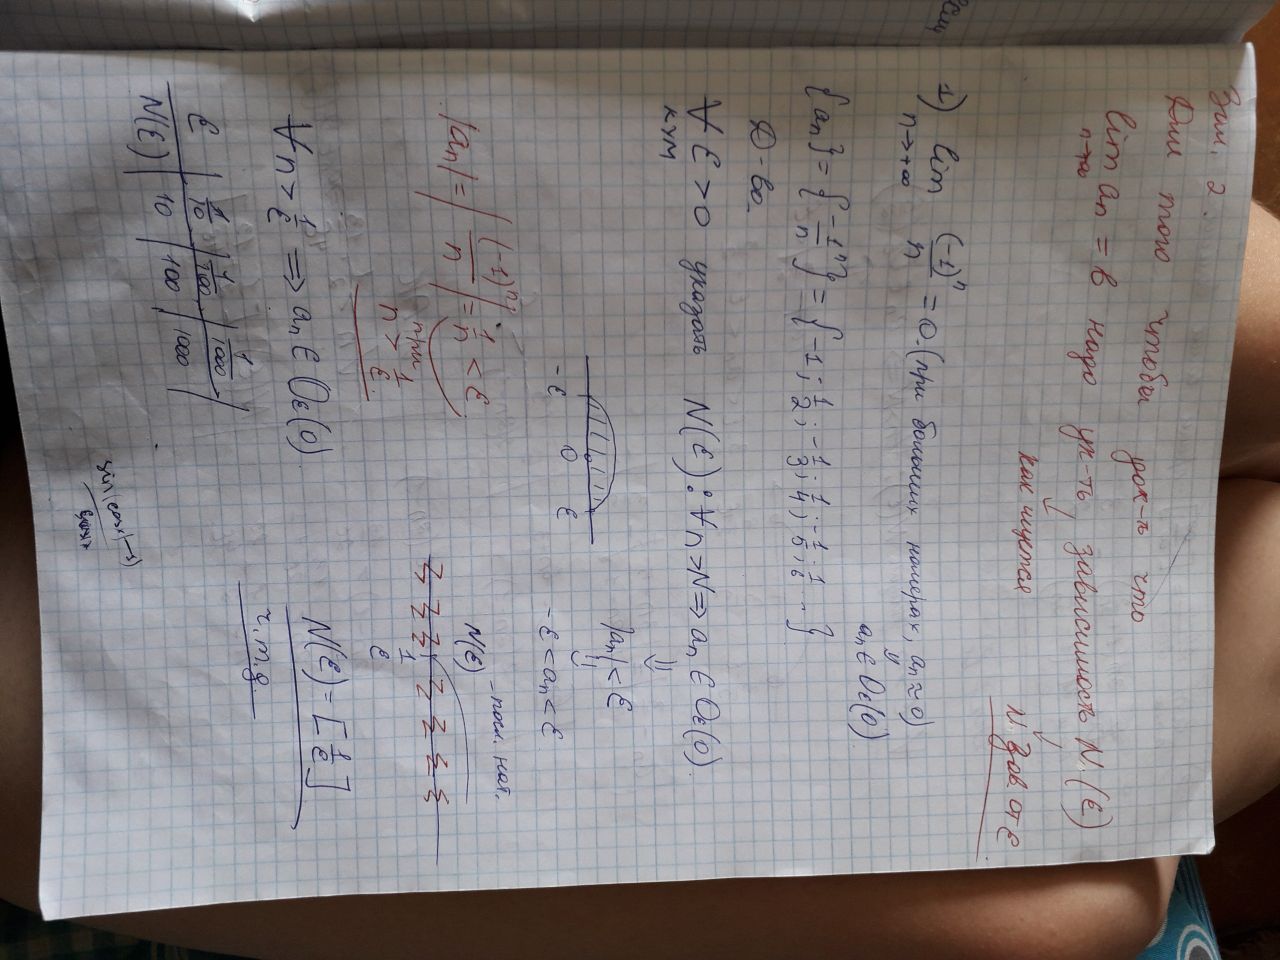 Зам. 2.
Для того чтобы док-ть что
lim aₙ = b надо ук-ть зависимость N(ε)
n→∞
как ищется N зав от ε
1) lim (-1)ⁿ/n = 0. (при больших номерах, aₙ ≈ 0)
n→+∞
aₙ ∈ Oε(0)
{aₙ} = {-1ⁿ/n} = {-1; 1/2; -1/3; 1/4; -1/5; 1/6 ... }
Д-во.
∀ ε > 0 указать N(ε): ∀n > N ⇒ aₙ ∈ Oε(0)
нум
⇓
|aₙ| < ε
⇓
-ε 0 ε
-ε < aₙ < ε
|aₙ| = |(-1)ⁿ/n| = 1/n < ε
при
n > 1/ε
N(ε) - посл. нат.
1/ε
∀n > 1/ε ⇒ aₙ ∈ Oε(0)
N(ε) = [1/ε]
ч.т.д.
ε | 1/10 | 1/100 | 1/1000
N(ε) | 10 | 100 | 1000